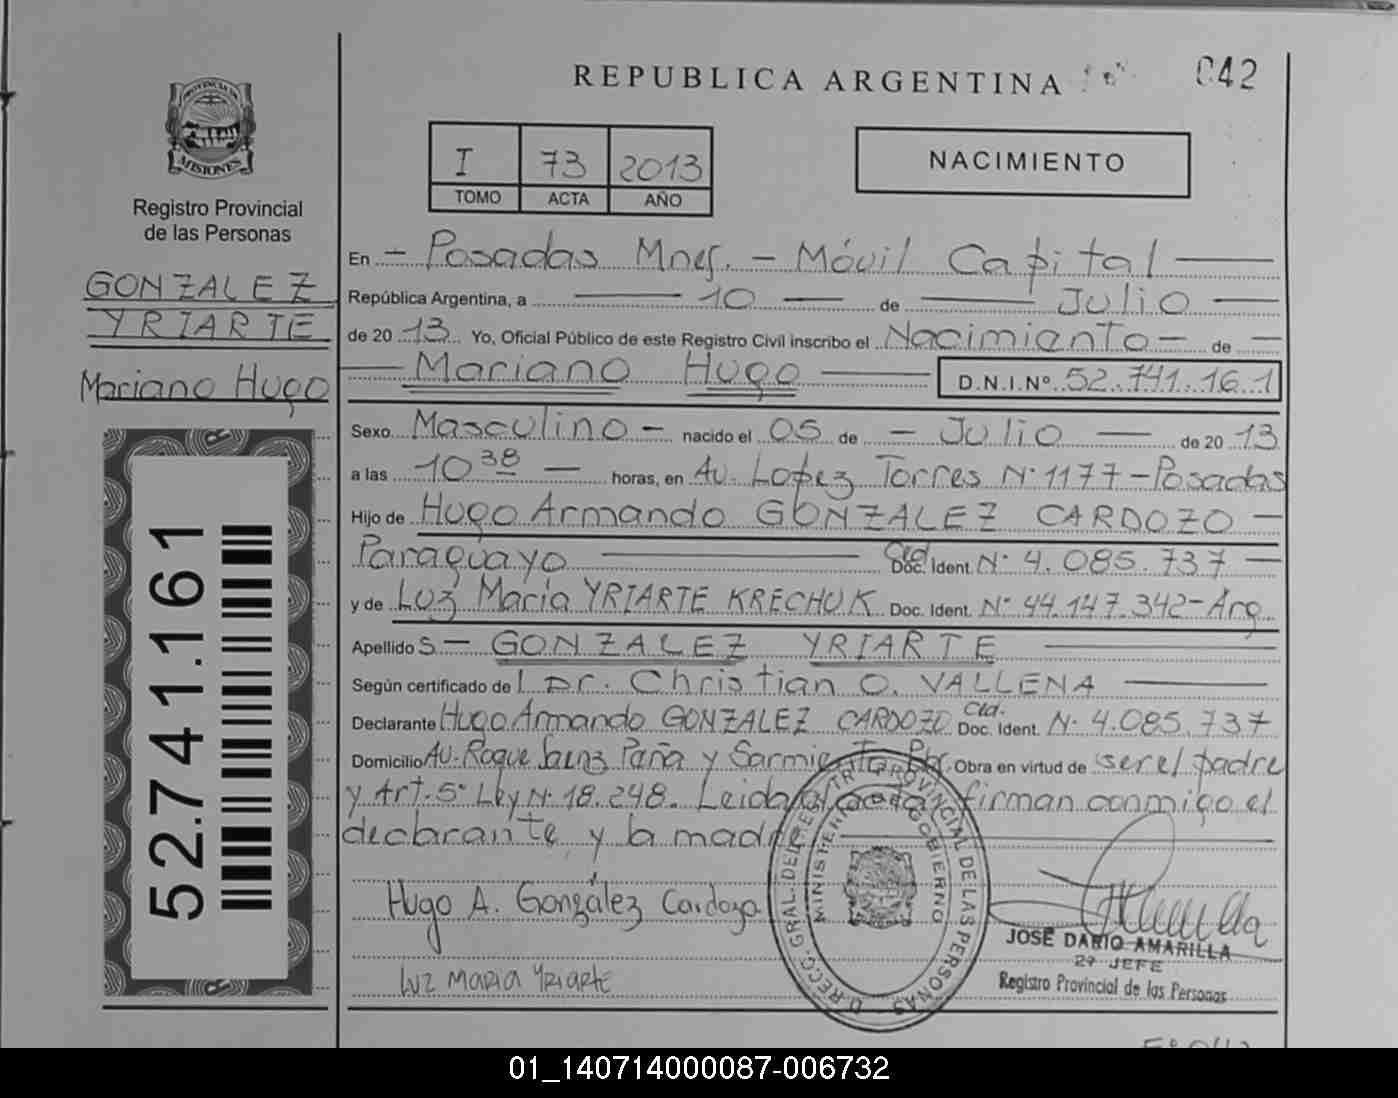 REPUBLICA ARGENTINA
042
PROVINCIA DE
MISIONES
Registro Provincial
de las Personas
GONZALEZ
YRIARTE
Mariano Hugo
52.741.161
I 73 2013
TOMO ACTA AÑO
NACIMIENTO
En - Posadas Mnes. - Móvil Capital
República Argentina, a 10 de Julio
de 2013 Yo, Oficial Público de este Registro Civil inscribo el Nacimiento - de -
Mariano Hugo D.N.I.Nº 52.741.161
Sexo Masculino - nacido el 05 de - Julio - de 2013
a las 10 38 - horas, en Av. Lopez Torres N° 1177 - Posadas
Hijo de Hugo Armando GONZALEZ CARDOZO -
Paraguayo Ced. Doc. Ident. N° 4.085.737 -
y de Luz Maria YRIARTE KRECHUK Doc. Ident. N° 44.147.342 - Arg.
Apellido s - GONZALEZ YRIARTE
Según certificado del Dr. Christian O. VALLENA
Declarante Hugo Armando GONZALEZ CARDOZO Ced. Doc. Ident. N° 4.085.737
Domicilio Av. Roque Saenz Paña y Sarmiento Pbr. Obra en virtud de ser el padre
y Art. 5° Ley N° 18.248. Leida el acta firman conmigo el
declarante y la madre
Hugo A. González Cardozo
Luz Maria Yriarte
D. RECC. GRAL. DEL REGISTRO PROVINCIAL DE LAS PERSONAS
MINISTERIO DE GOBIERNO
JOSE DARIO AMARILLA
2º JEFE
Registro Provincial de las Personas
01_140714000087-006732